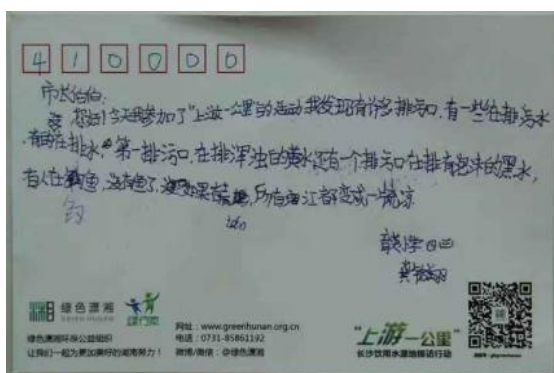 410000
市长伯伯:
您好!今天我参加了"上游一公里"的活动我发现有许多排污口,有一些在排污水
,有的在排水,第一排污口,在排浑浊的黄水还有一个排污口在排有泡沫的黑水,
有人在鱼,没有鱼了,如果在江都变成一片荒凉
钓
绿色潇湘
GREEN HUNAN
绿色潇湘环保公益组织
让我们一起为更加美好的湖南努力!
网址:www.greenhunan.org.cn
电话:0731-85861192
微博/微信:@绿色潇湘
"上游一公里"
长沙饮用水源地探访行动